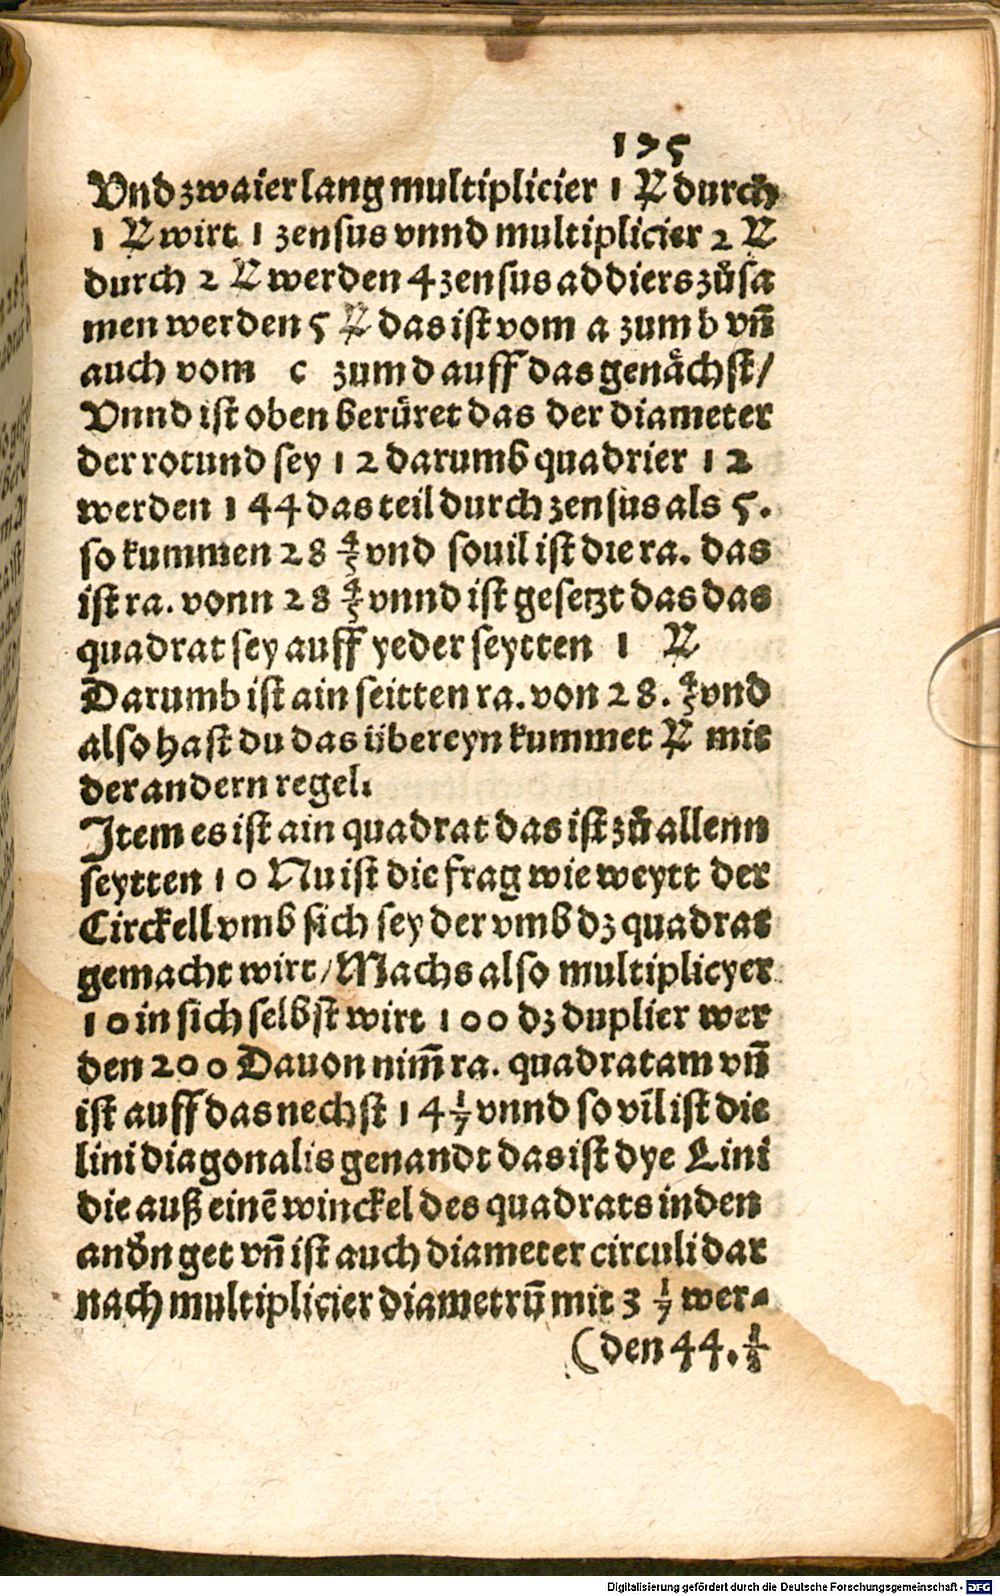 175
Vnd zwaier lang multiplicier 1 ℞ durch
1 ℞ wirt 1 zensus vnnd multiplicier 2 ℞
durch 2 ℞ werden 4 zensus addiers zůsa
men werden 5 ℞ das ist vom a zum b vn̄
auch vom c zum d auff das genächst/
Vnnd ist oben berüret das der diameter
der rotund sey 12 darumb quadrier 12
werden 144 das teil durch zensus als 5.
so kummen 28 4/5 vnd souil ist die ra. das
ist ra. vonn 28 4/5 vnnd ist gesetzt das das
quadrat sey auff yeder seytten 1 ℞
Darumb ist ain seitten ra. von 28. 4/5 vnd
also hast du das übereyn kummet ℞ mit
der andern regel.
Item es ist ain quadrat das ist zů allenn
seytten 10 Nu ist die frag wie weytt der
Circkell vmb sich sey der vmb dz quadrat
gemacht wirt/ Machs also multiplicyer
10 in sich selbst wirt 100 dz duplier wer
den 200 Dauon nim̄ ra. quadratam vn̄
ist auff das nechst 14 1/7 vnnd so vil ist die
lini diagonalis genandt das ist dye Lini
die auß einē winckel des quadrats in den
andn̄ get vn̄ ist auch diameter circuli dar
nach multiplicier diametrū mit 3 1/7 wer-
(den 44. 1/8
Digitalisierung gefördert durch die Deutsche Forschungsgemeinschaft - DFG